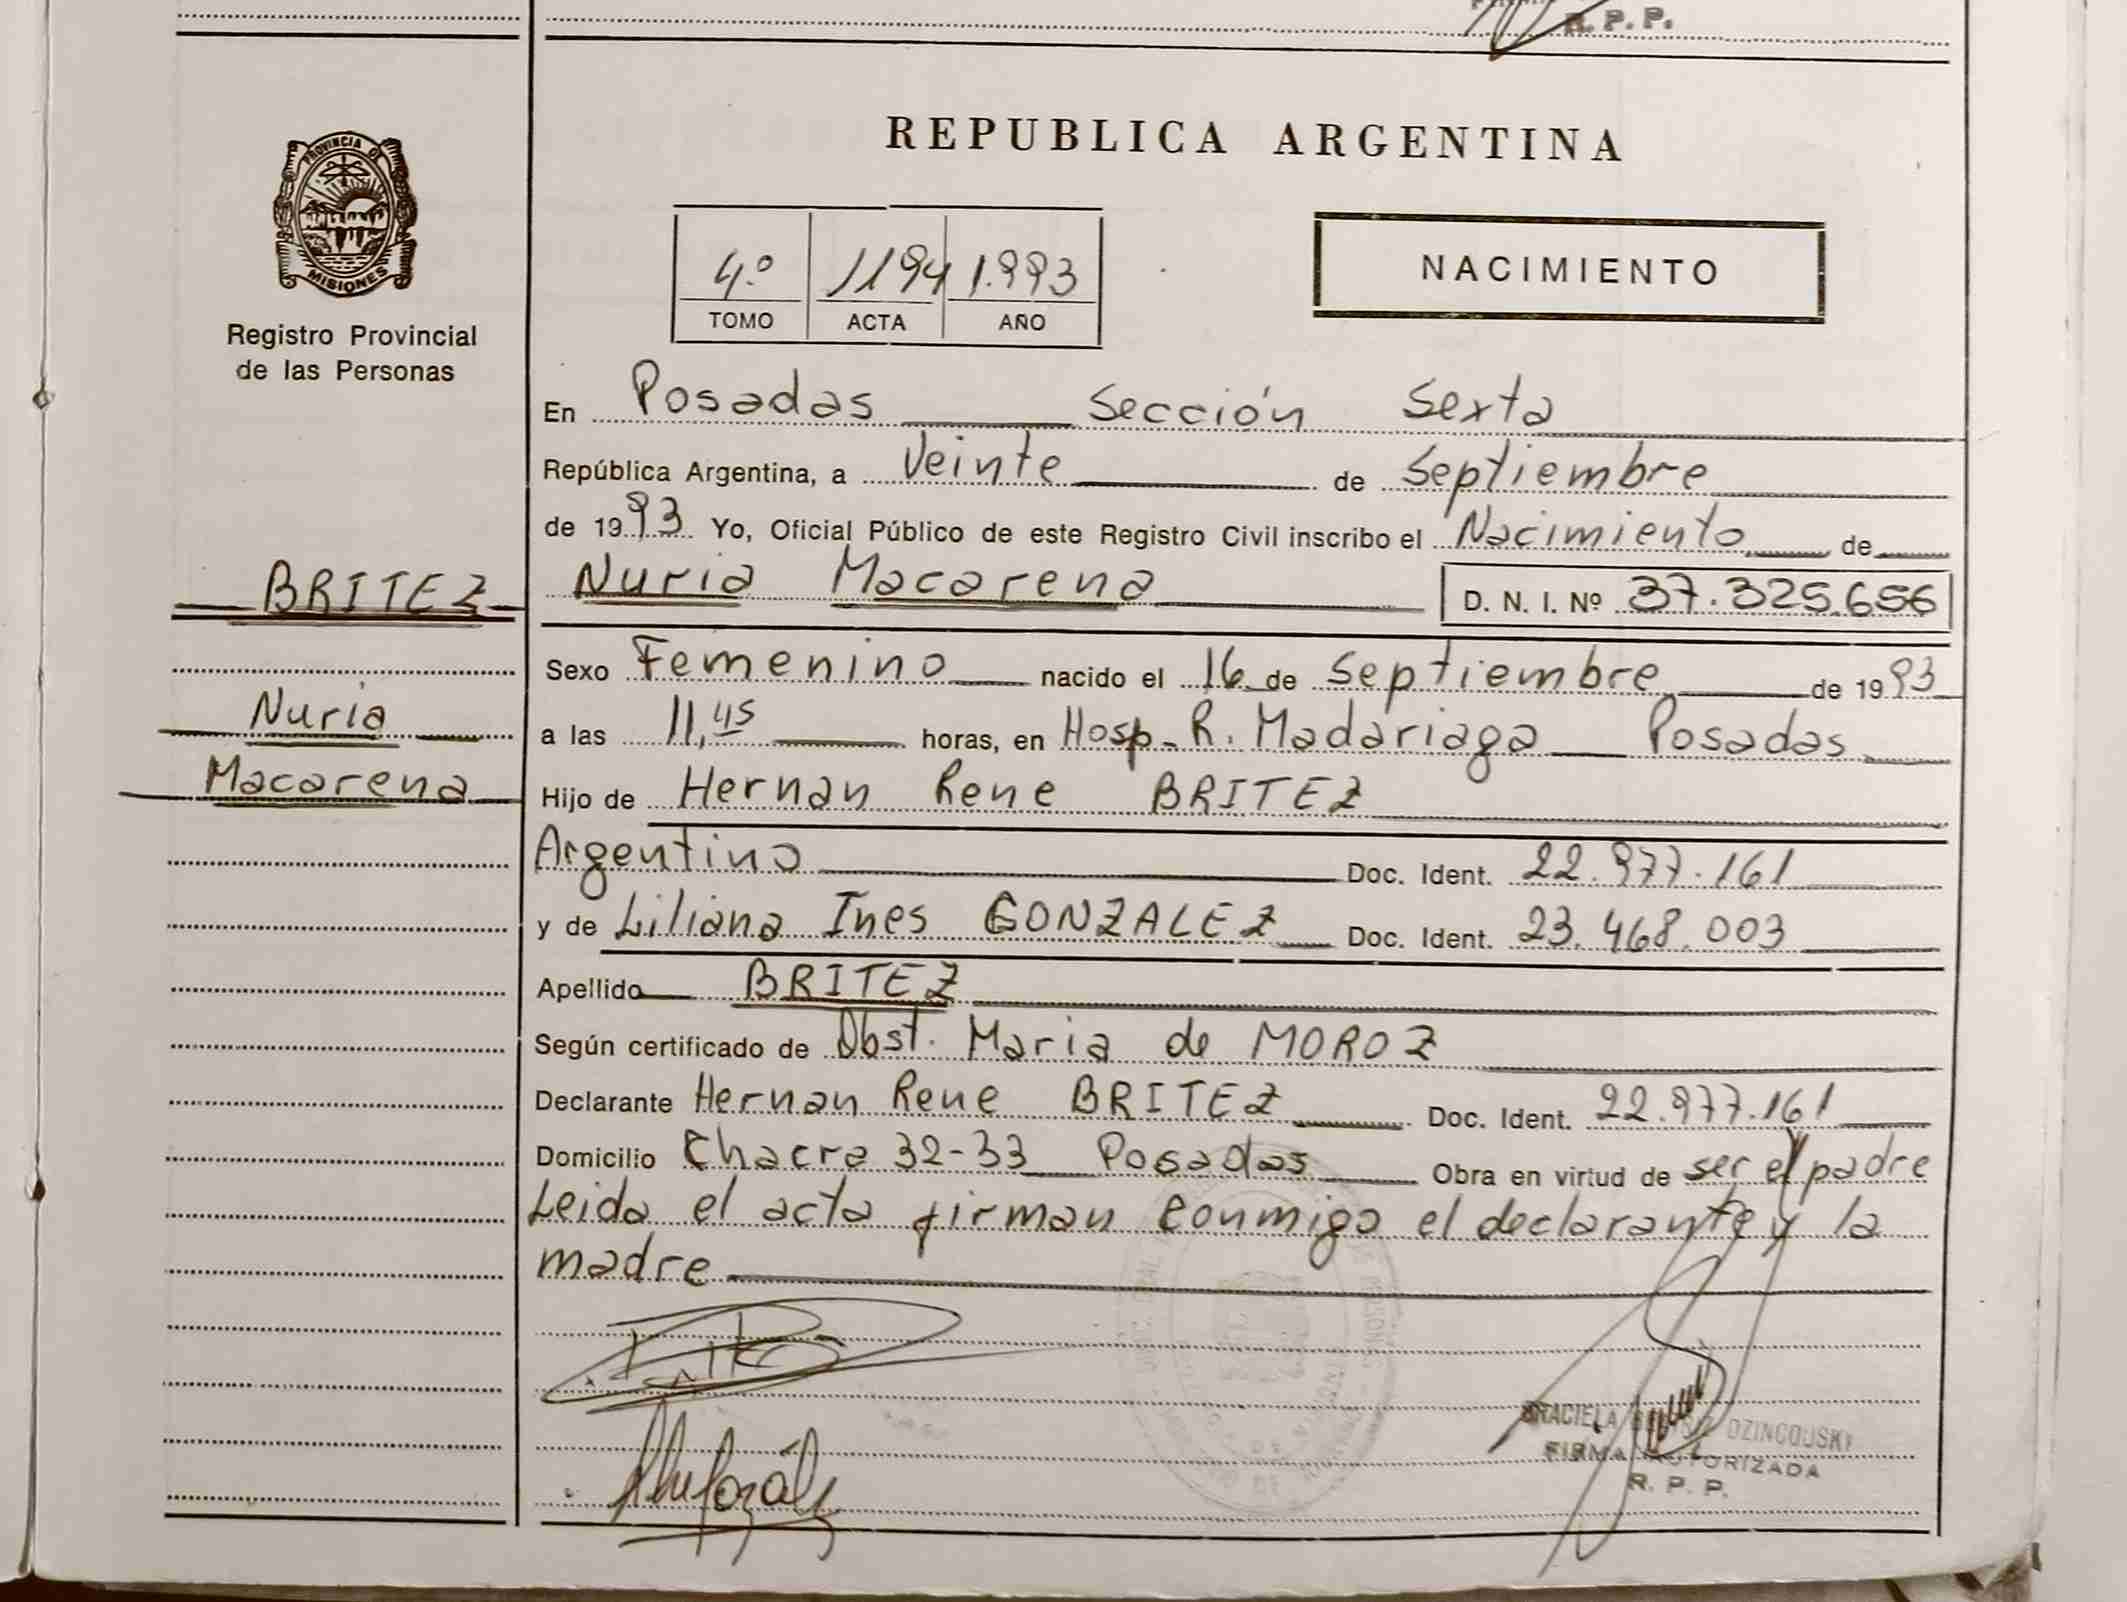 R. P. P.
PROVINCIA DE
MISIONES
Registro Provincial
de las Personas
BRITEZ
Nuria
Macarena
REPUBLICA ARGENTINA
4.º 1194 1.993
TOMO ACTA AÑO
NACIMIENTO
En Posadas Sección Sexta
República Argentina, a Veinte de Septiembre
de 1993 Yo, Oficial Público de este Registro Civil inscribo el Nacimiento de
Nuria Macarena D. N. I. Nº 37.325.656
Sexo Femenino nacido el 16 de Septiembre de 1993
a las 11,45 horas, en Hosp. R. Madariaga Posadas
Hijo de Hernan Rene BRITEZ
Argentino Doc. Ident. 22.977.161
y de Liliana Ines GONZALEZ Doc. Ident. 23.468.003
Apellido BRITEZ
Según certificado de Obst. Maria de MOROZ
Declarante Hernan Rene BRITEZ Doc. Ident. 22.977.161
Domicilio Chacra 32-33 Posadas Obra en virtud de ser el padre
Leida el acta firman conmigo el declarante y la
madre
GRACIELA DZINCOUSKI
FIRMA AUTORIZADA
R. P. P.